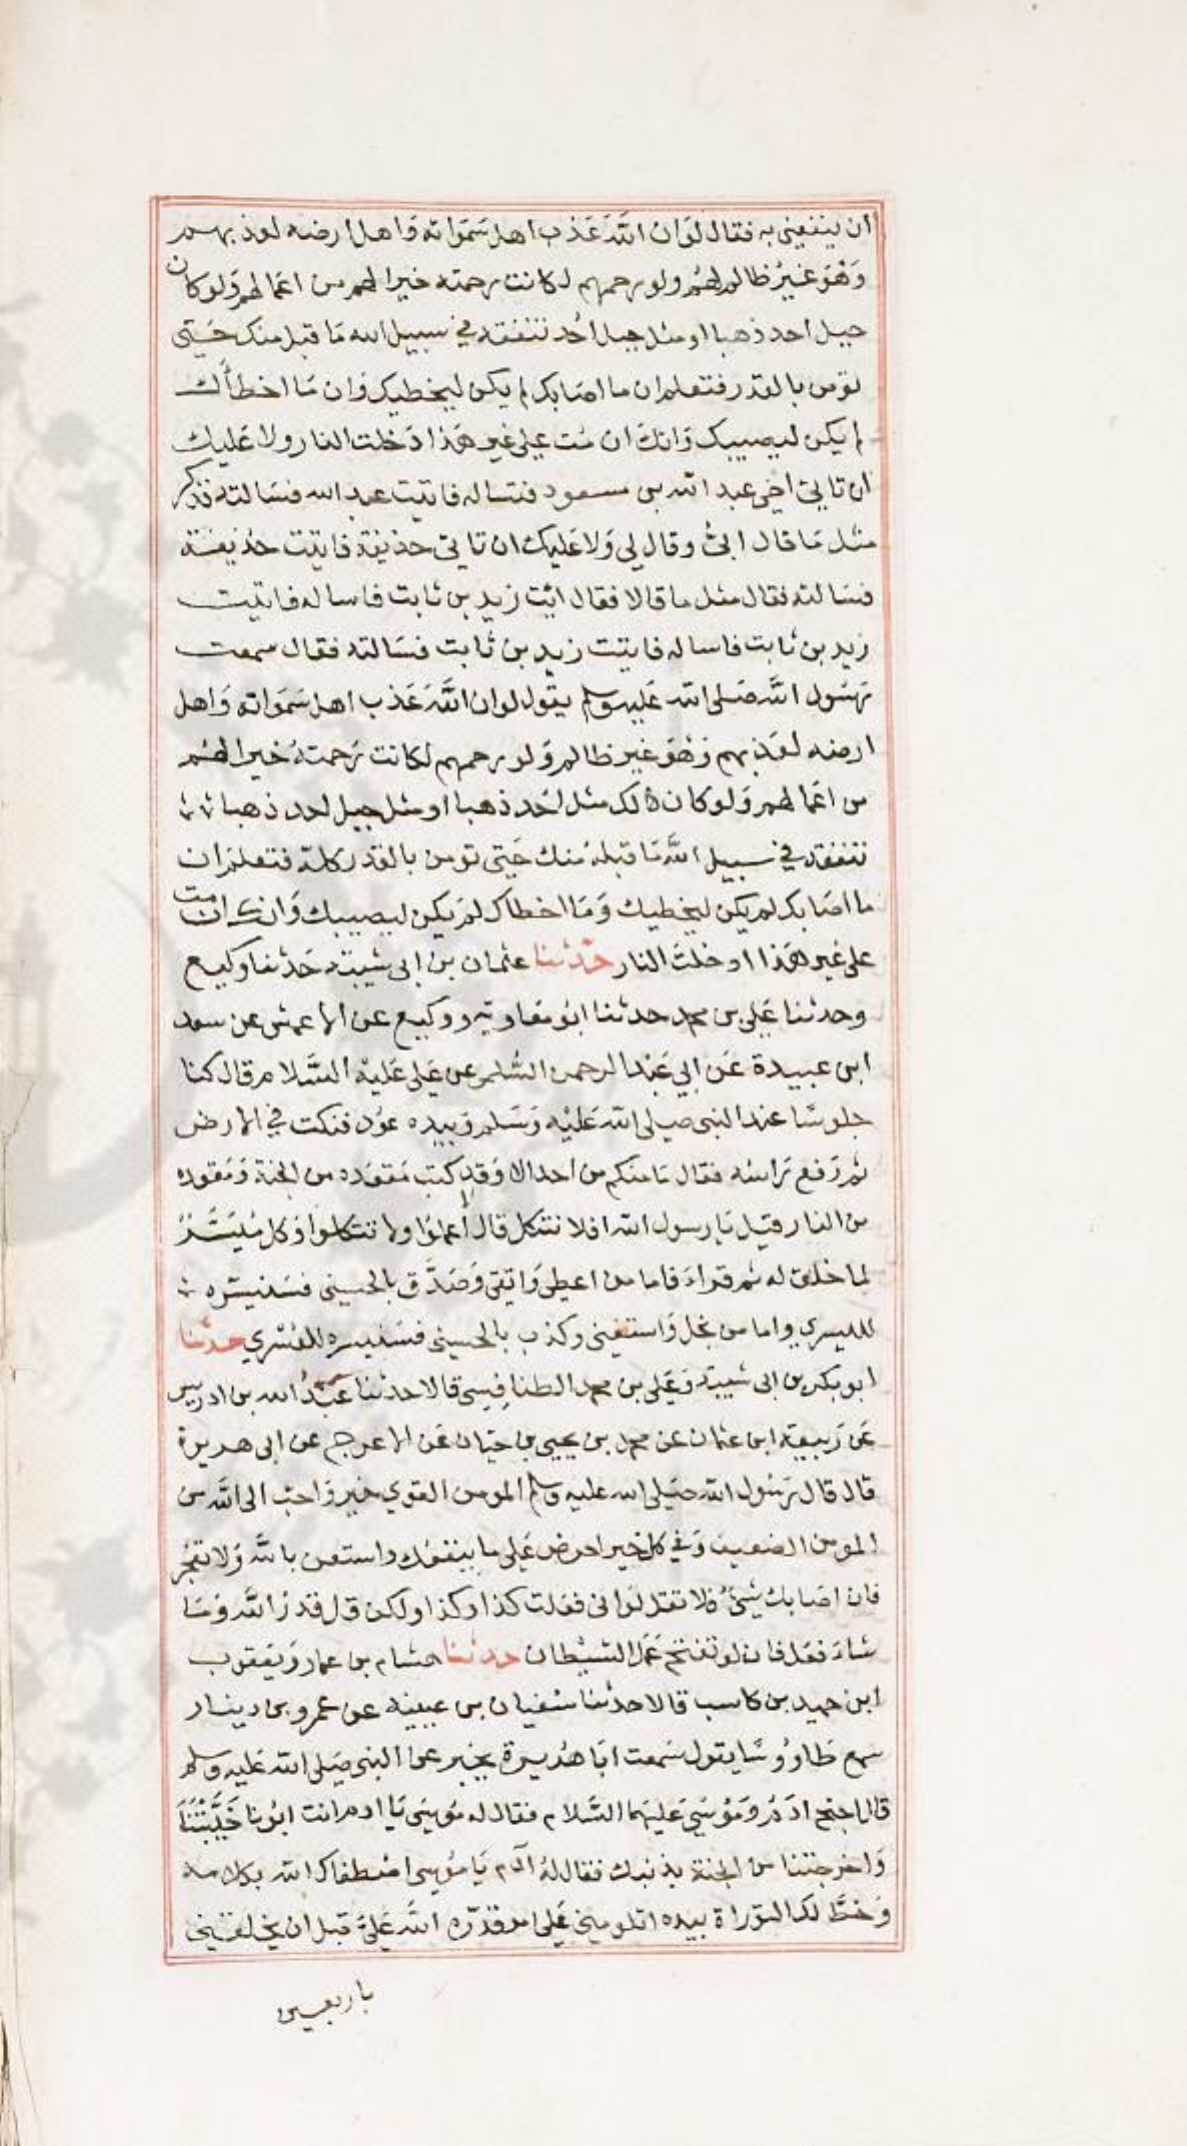 ان ينفعني به فقال لَوان اللَّه عَذب اهل سَمَواته وَاهل ارضه لعذبهم
وَهُوَ غيرُ ظالم لهُم ولو رحمهم لكانت رحمته خيرا لهم من اعمالهم وَلو كان
جبل احد ذهبا او مثل جبل اُحد تنفقه في سبيل الله مَا قبل منك حَتى
تؤمن بالقدر فتعلم ان ما اصَابك لم يكن ليخطيك وَان مَا اخطأَك
لم يكن ليصيبك وَانكَ ان مُت على غير هَذا دَخلت النار ولا عَليك
ان تاتي اخي عبد الله بن مسعود فتساله فاتيت عبد الله فسَالته فذكر
مثل مَا قال ابيٌّ وقال لي وَلا عَليك ان تاتي حذيفة فاتيت حُذيفة
فسَالته فقال مثل ما قالا فقال ائت زيد بن ثابت فاساله فاتيت
زيد بن ثابت فاساله فاتيت زيد بن ثابت فسَالته فقال سمعت
رَسُول اللَّه صَلى الله عَليه وسلم يقول لو ان اللَّه عَذب اهل سَمَواته وَاهل
ارضه لعَذبهم وَهُوَ غير ظالم وَلو رحمهم لكانت رَحمتهُ خيرا لهُم
من اعَمالهم وَلو كان ذَالك مثل اُحُد ذهبا او مثل جبل احد ذهبا
تنفقه في سبيل اللَّه مَا قبلهُ مُنك حَتى تومن بالقدر كله فتعلمَ ان
ما اصَابك لم يكن ليخطيك وَمَا اخطاك لمَ يكن ليصيبك وَانك ان مت
على غير هَذا ادخلتَ النار حَدثنا عثمان بن ابي شيبَة حَدثنا وكيع
وحدثنا عَلي بن محمد حدثنا ابُو مُعاوية ووكيع عن الاعمش عن سعد
ابن عبيدة عَن ابي عَبد الرحمن السُّلمي عن عَلي عَليْه السَّلام قال كنا
جلوسًا عند النبي صَلى الله عَليْه وَسَلم وَبيده عوُد فنكت في الارض
ثم رَفع رَاسَه فقال مَا منكم من احد الا وَقد كتب مَقعَده من الجنة وَمَقعده
من النار قيل يَا رسول الله افلا نتكل قال لا أعملوُا ولا تتكلوا وَكل مُيَسَّرٌ
لما خلق له ثم قراءَ فاما من اعطى وَاتقى وَصَدَّق بالحسنى فسَنيسّره
لليسري واما من بخل وَاستغنى وكذب بالحسنى فسَنيسره للعُسْري حدثنا
ابو بكر بن ابي شيبة وَعَلي بن محمد الطنافِسي قالا حدثنا عَبدُ الله بن ادريس
عَن رَبيعَة ابن عثمان عَن محمد بن يحيى بن حَبان عَن الاعرج عن ابي هريرة
قال قال رَسُول الله صَلى الله عليه وسلم المومن القوي خير وَاحبّ الى اللَّه من
المومن الضعيف وَفي كل خير احرض عَلى ما ينفعُك واستعن باللَّه وَلا تعجز
فان اصَابك شيءُ فلا تقل لوَ اني فعَلت كذا وكذا ولكن قل قدرَ اللَّه وَمَا
شاءَ فعَل فان لو تفتح عَمَل الشيْطان حدثنا هشام بن عمار وَيَعقوب
ابن حميد بن كاسب قالا حدثنا سُفيان بن عيينه عن عمرو بن دينار
سمع طَاووُسًا يقول سَمعت ابَا هُريرة يخبر عن النبي صَلى الله عَليه وسلم
قال احتج ادَمُ وَمُوْسَي عَليهَما السَّلام فقال له مُوسَي يَا ادم انت ابُونا خَيَّبْتَنَا
وَاخرجتنا من الجنة بذنبك فقال لهُ آدَم يَا مُوسى اصْطفاك الله بكلامه
وَخطَّ لك التوراة بيده اتلومني عَلى امر قدّره اللَّه عَليَّ قبل ان يخلقني
باربعين